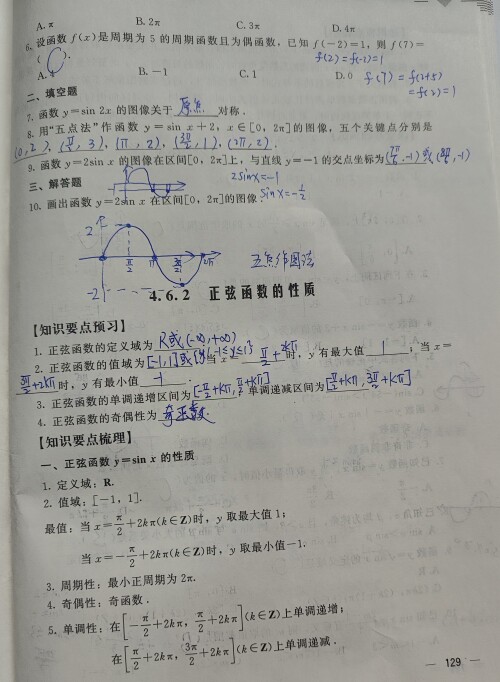 A. π B. 2π C. 3π D. 4π
6. 设函数 f(x)是周期为 5 的周期函数且为偶函数，已知 f(−2)=1，则 f(7)=
( C ).
f(2)=f(-2)=1
A. 4 B. −1 C. 1 D. 0 f(7)=f(2+5)
=f(2)=1
二、填空题
7. 函数 y=sin 2x 的图像关于 原点 对称.
8. 用“五点法”作函数 y=sin x+2，x∈[0，2π]的图像，五个关键点分别是
(0,2), (π/2,3), (π,2), (3π/2,1), (2π,2).
9. 函数 y=2sin x 的图像在区间[0，2π]上，与直线 y=−1 的交点坐标为
三、解答题
2sinx=-1
10. 画出函数 y=2sin x 在区间[0，2π]的图像. sinx=-1/2
2
π/2 π 3π/2 2π
五点作图法
-2
4.6.2 正弦函数的性质
【知识要点预习】
1. 正弦函数的定义域为 R或(-∞,+∞)
2. 正弦函数的值域为 [-1,1]或{y|-1≤y≤1} 当 x= π/2+2kπ 时，y 有最大值 1；当 x=
3π/2+2kπ 时，y 有最小值 -1.
3. 正弦函数的单调递增区间为 单调递减区间为
4. 正弦函数的奇偶性为 奇函数.
【知识要点梳理】
一、正弦函数 y=sin x 的性质
1. 定义域：R.
2. 值域：[−1，1].
最值：当 x=π/2+2kπ(k∈Z)时，y 取最大值 1；
当 x=−π/2+2kπ(k∈Z)时，y 取最小值−1.
3. 周期性：最小正周期为 2π.
4. 奇偶性：奇函数.
5. 单调性：在[−π/2+2kπ，π/2+2kπ](k∈Z)上单调递增；
在[π/2+2kπ，3π/2+2kπ](k∈Z)上单调递减.
— 129 —